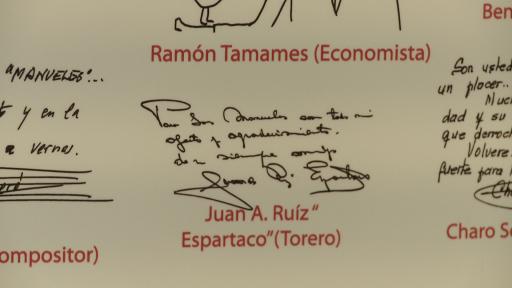 Ben
Ramón Tamames (Economista)
"MANUELES"...
y en la
a vernos.
Para Los Manueles con todo mi
afecto y agradecimiento.
de su siempre amigo
Juan A. Ruíz "
Espartaco" (Torero)
ompositor)
Son usted
un placer..
Much
dad y su
que derroch
Volveré
fuerte para
Charo Se